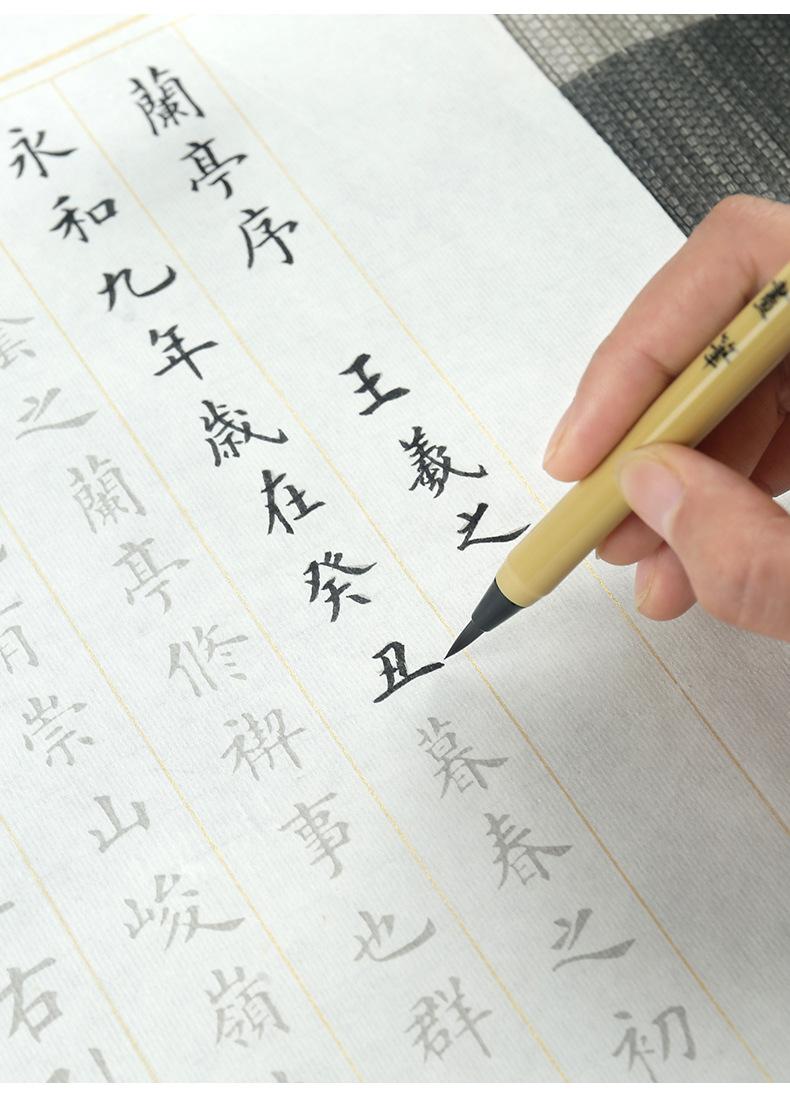 蘭亭序 王羲之
永和九年歲在癸丑暮春之初
之蘭亭修禊事也群
有崇山峻嶺
右
筆